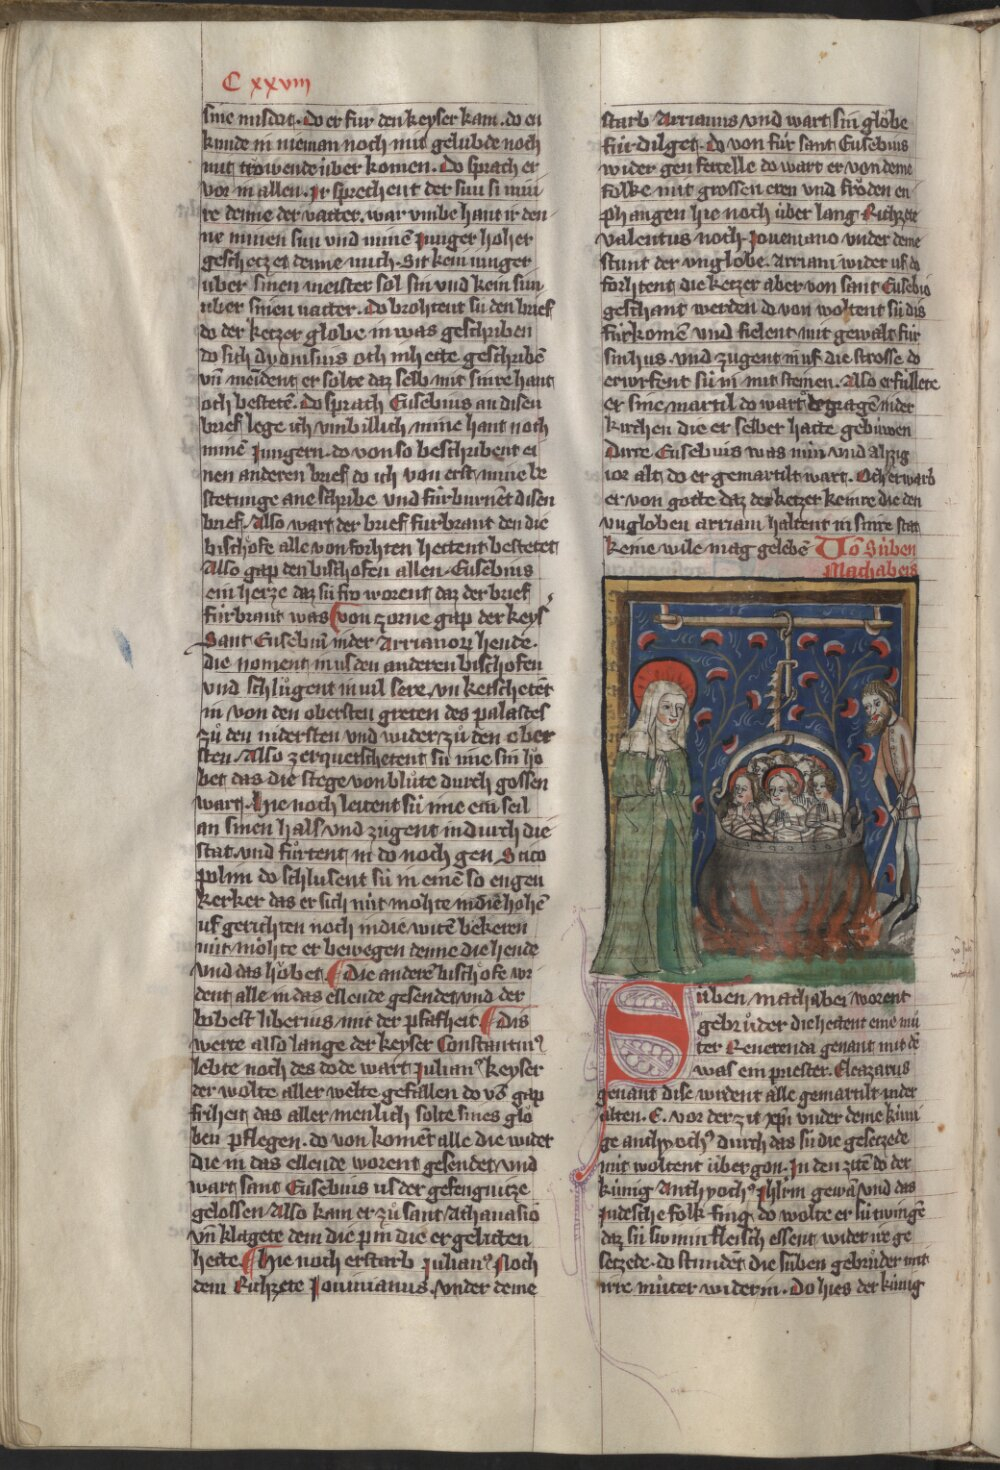 C xxviii
sine missetat. do er für den keyser kam. do en
kunde in nieman noch mit gelübde noch
mit tröwende über komen. Do sprach er
vor in allen. Ir sprechent der sun si min
re denne der vatter. war umbe hant ir den
ne minen sun und minē Junger hoher
geschetzet denne mich. Sit kein iunger
über sinen meister sol sin und kein sun
über sinen vatter. Do brohtent sü den brief
do der ketzer globe in was geschriben
do sich dyonisius och in hette geschribē
vn̄ meīdent er solte daz selb mit sinre hant
och bestetē. Do sprach Eusebius an disen
brief lege ich unbillich mine hant noch
minē Jungern. do von so beschribent ei
nen anderen brief do ich von erst mine be
stetunge ane schribe und fürburnēt disen
brief. Also wart der brief fürbrant den die
bischofe alle von forhten hettent bestetet
Also gap den bischofen allen Eusebius
ein herze daz sü fro worent daz der brief
fürbrant was von zorne gap der keys
Sant Eusebiū in der Arrianorū hende.
die noment in us den anderen bischofen
und schlůgent in vil sere. un̄ ketschetēt
in von den obersten greten des palastes
zů den nidersten und wider zů den ober
sten. Also zerquetschetent sü ime sin hö
bet das die stege von blůte durch gossen
wart. Hie noch leitent sü ime ein seil
an sinen hals und zugent in durch die
stat. und fůrtent in do noch gen Scico
polim do schlusent sü in einē so engen
kerker das er sich nüt mohte in die hohē
uf gerichten noch in die witē bekeren
nüt mohte er bewegen denne die hende
und das höbet. Die anderē bischofe wr
dent alle in das ellende gesendet und der
bobest liberius mit der pfafheit. Dis
werte also lange der keyser Constantiuꝰ
lebte noch des dode wart Julianꝰ keyser
der wolte aller welte gefallen do vō gap
friheit das aller menlich solte sines glö
ben pflegen. do von komēt alle die wider
die in das ellende worent gesendet und
wart sant Eusebius us der gefengnitze
gelossen Also kam er zů sant Athanasio
vn̄ klagete dem die pin die er geliten
hette. Hie noch erstarb Julianꝰ Noch
dem Richzete Jovinianus. under deme
starb Arrianus und wart sin globe
für dilget. do von für sant Eusebius
wider gen fercelle do wart er von deme
folke mit grossen eren und fröden en
phangen hie noch über lang Richzet
valentus noch Joveniano under deme
stunt der unglobe. Arriani wider uf do
forhtent die ketzer aber von sant Eusebio
geschant werden do von woltent sü dis
fürkomē und fielent mit gewalt für
sin hus. und zugent in uf die strosse do
erwrfent sü in mit steinen. Also erfüllete
er sine martil do wart getragē in der
kirchen die er selber hatte gebuwen
Dirre Eusebius was nün und alzig
ior alt. do er gemartilt wart. Och erwarb
er von gotte daz der ketzer keinre die den
ungloben arriani haltent in sinre stat
keine wile mag gelebē Vō Süben
Machabeis
Süben machabei worent
gebrůder die hettent eine mů
ter Reverenda genant mit dē
was ein priester. Eleazarus
genant dise wrdent alle gemartilt in der
alten. E. vor der zit xp̄i under deme küni
ge anthyochꝰ durch das sü die gesetzede
nüt woltent übergon. In den zitē do der
künig Anthyochꝰ Jhrl̄m gewā und das
Judesche folk fing. do wolte er sü twingē
daz sü swinin fleisch essent wider ire ge
setzede. do stundēt die süben gebrůder mit
irre můter wider in. Do hies der künig